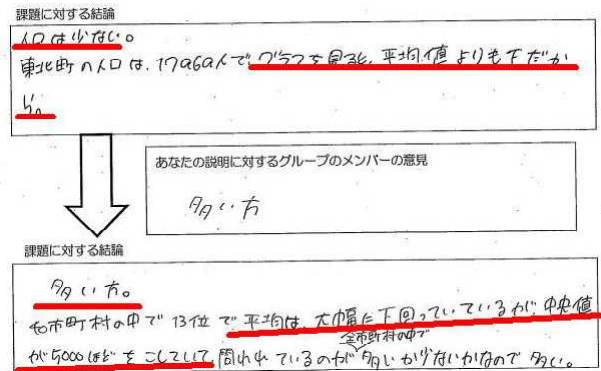 課題に対する結論
人口は少ない。
東北町の人口は、17969人で、グラフを見ると、平均値よりも下だか
ら。
あなたの説明に対するグループのメンバーの意見
多い方
課題に対する結論
多い方。
市町村の中で13位で平均は、大幅に下回っていているが、中央値
全市町村の中で
が5000ほどをこしていて、問われているのが多いか少ないかなので多い。